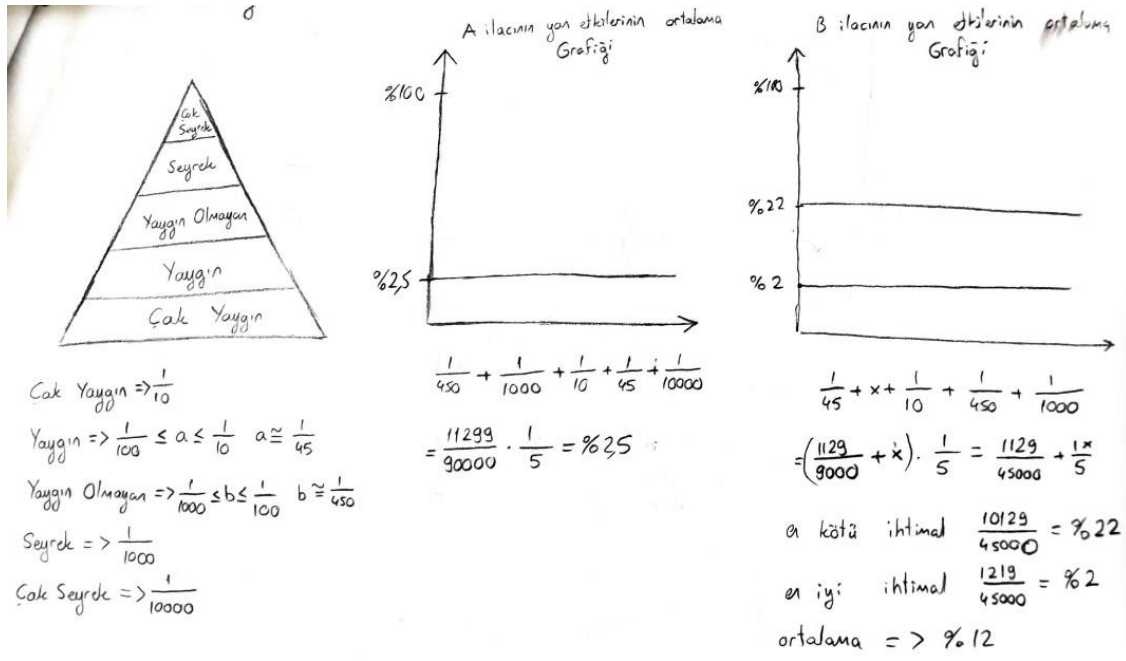 Çok
Seyrek
Seyrek
Yaygın Olmayan
Yaygın
Çok Yaygın
Çok Yaygın => 1/10
Yaygın => 1/100 ≤ a ≤ 1/10 a ≅ 1/45
Yaygın Olmayan => 1/1000 ≤ b ≤ 1/100 b ≅ 1/450
Seyrek => 1/1000
Çok Seyrek => 1/10000
A ilacının yan etkilerinin ortalama
Grafiği
%100
%2,5
1/450 + 1/1000 + 1/10 + 1/45 + 1/10000
= 11299/90000 . 1/5 = %2,5
B ilacının yan etkilerinin ortalama
Grafiği
%100
%22
%2
1/45 + x + 1/10 + 1/450 + 1/1000
= (1129/9000 + x) . 1/5 = 1129/45000 + 1x/5
en kötü ihtimal 10129/45000 = %22
en iyi ihtimal 1219/45000 = %2
ortalama => %12